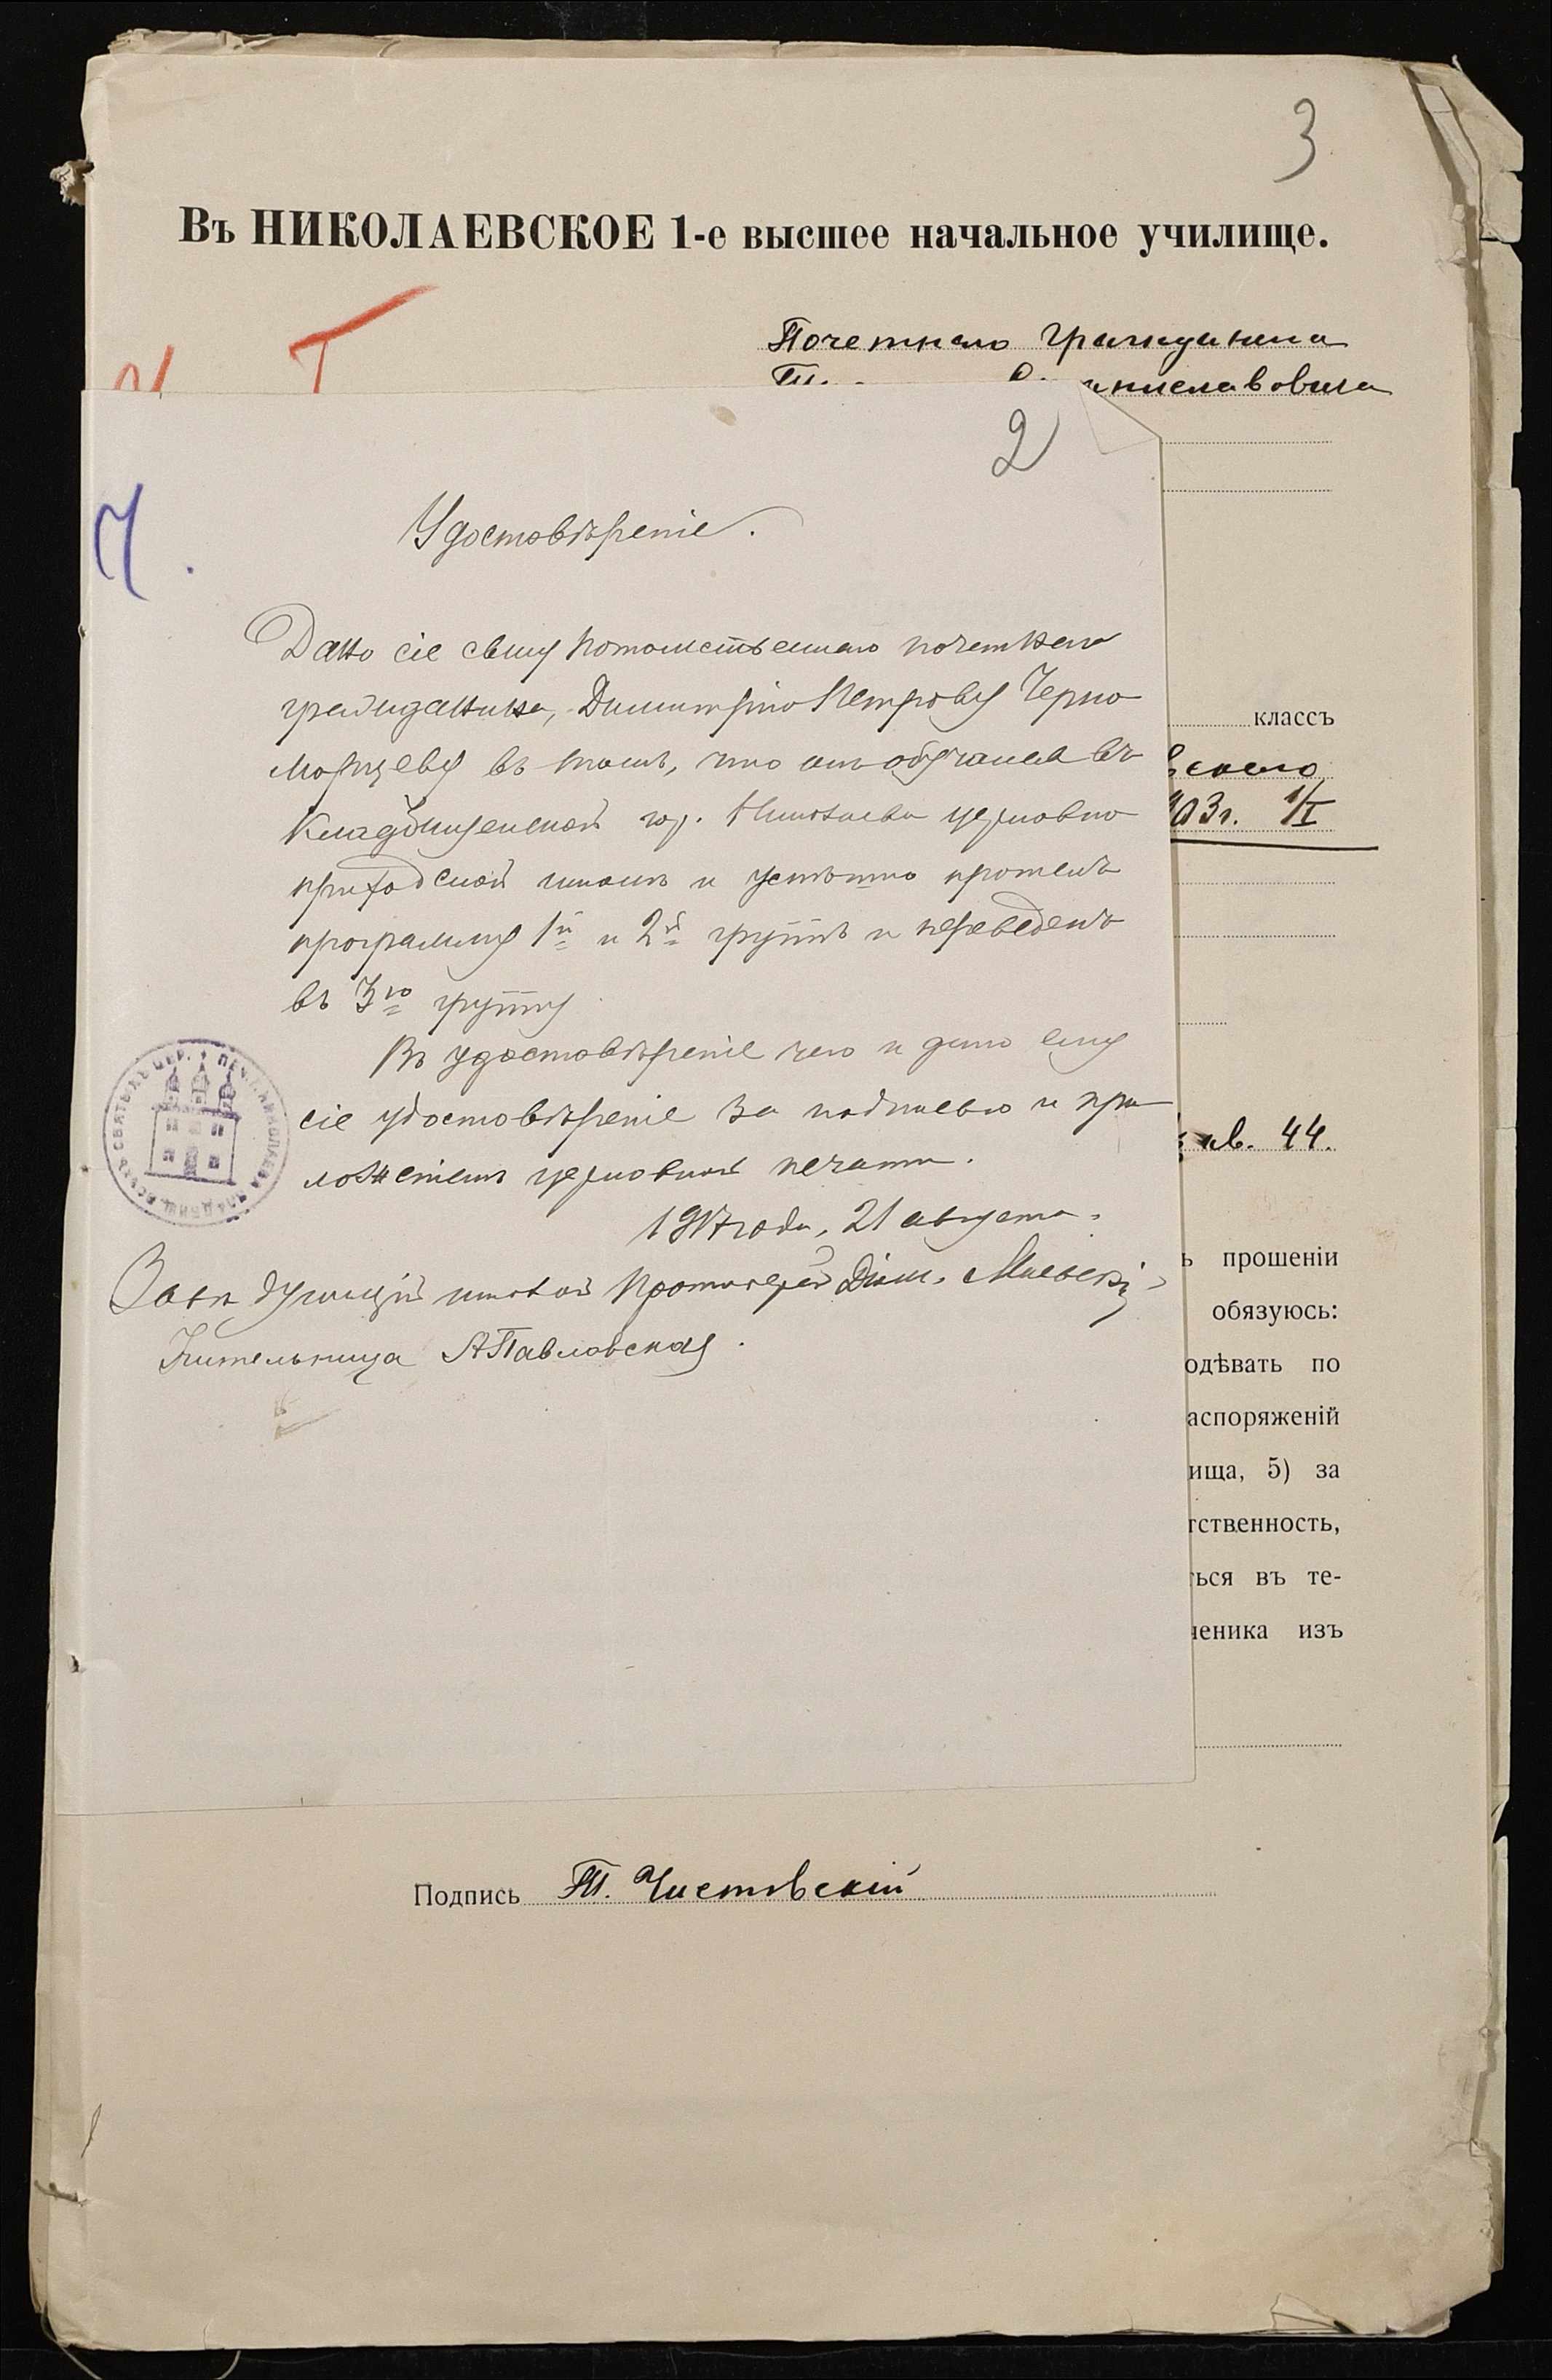 3
Въ НИКОЛАЕВСКОЕ 1-е высшее начальное училище.
Почетнаго гражданина
2
Ч.
Удостовѣреніе.
Дано сіе сыну потомственнаго почетнаго
гражданина, Димитрію Петрову Черно
морцеву въ томъ, что онъ обучался въ
Кладбищенской гор. Николаева церковно
приходской школѣ и успѣшно прошелъ
программу 1й и 2й группъ и переведенъ
въ 3ю группу
Въ удостовѣреніе чего и дано ему
сіе удостовѣреніе за подписью и при
ложеніемъ церковной печати.
1917 года, 21 августа.
Завѣдующій школой Протоіерей Дим.
Учительница А Павловская.
классъ
03г. 1/I
кв. 44.
прошеніи
обязуюсь:
одѣвать по
аспоряженій
ища, 5) за
тственность,
ться въ те-
ченика изъ
Подпись Т. Чистовскій